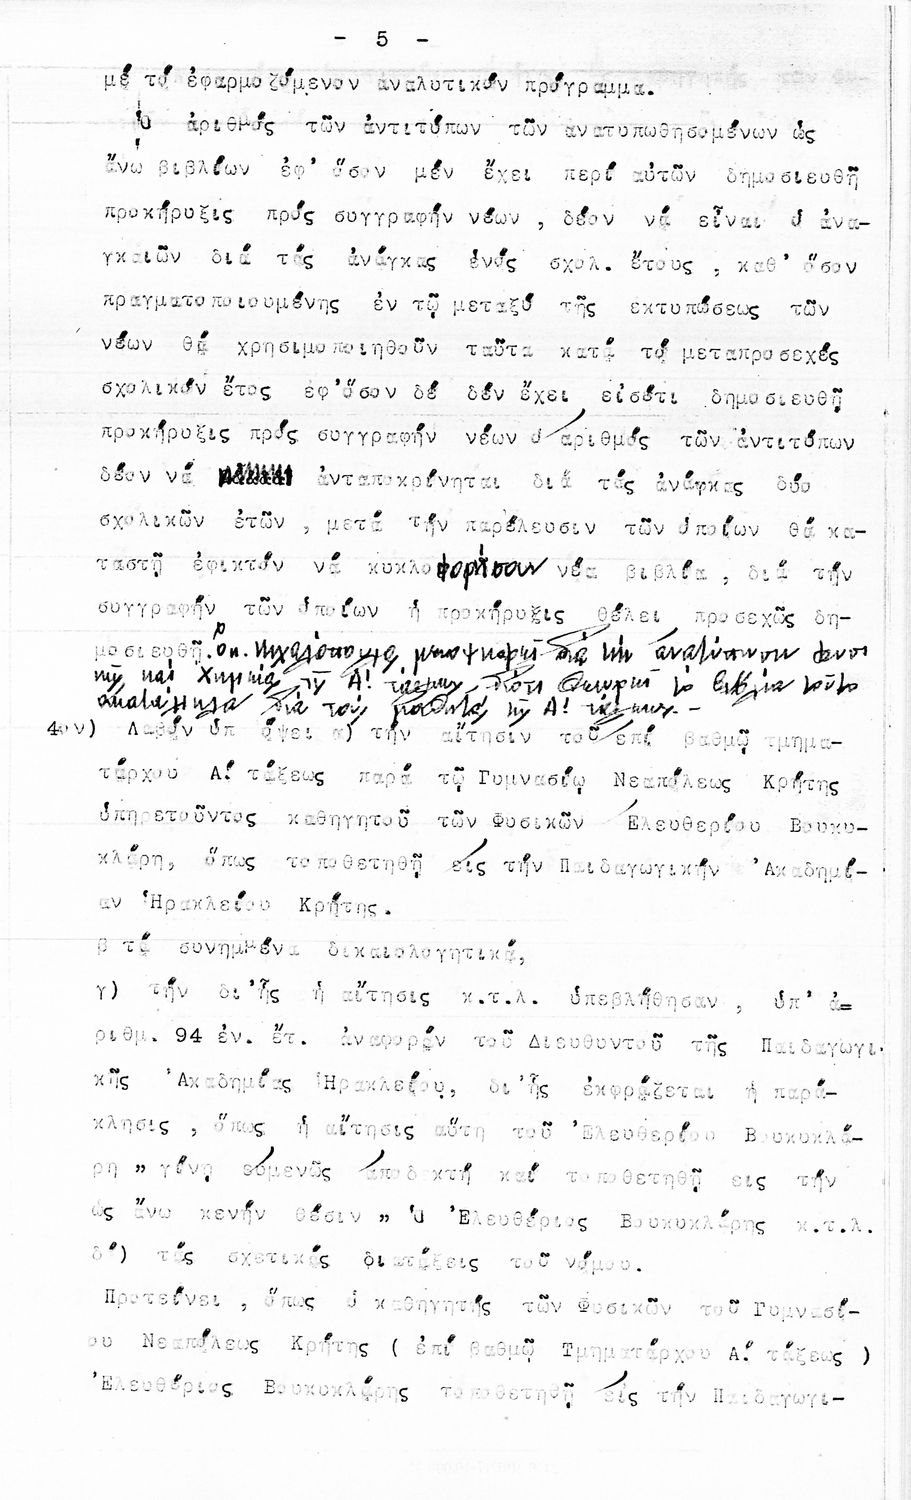 - 5 -
μέ τό ἐφαρμοζόμενον ἀναλυτικόν πρόγραμμα.
Ὁ ἀριθμός τῶν ἀντιτύπων τῶν ἀνατυπωθησομένων ὡς
ἄνω βιβλίων ἐφ' ὅσον μέν ἔχει περί αὐτῶν δημοσιευθῆ
προκήρυξις πρός συγγραφήν νέων , δέον νά εἶναι ὁ ἀνα-
γκαιῶν διά τάς ἀνάγκας ἑνός σχολ. ἔτους , καθ' ὅσον
πραγματοποιουμένης ἐν τῷ μεταξύ τῆς εκτυπώσεως τῶν
νέων θά χρησιμοποιηθοῦν ταῦτα κατά τό μεταπροσεχές
σχολικόν ἔτος εφ'ὅσον δέ δέν ἔχει εἰσέτι δημοσιευθῆ
προκήρυξις πρός συγγραφήν νέων ὁ ἀριθμός τῶν ἀντιτύπων
δέον νά ἀνταποκρίνηται διά τάς ἀνάγκας δύο
σχολικῶν ἐτῶν , μετά τήν παρέλευσιν τῶν ὁποίων θά κα-
ταστῆ ἐφικτόν νά κυκλοφορήσουν νέα βιβλία , διά τήν
συγγραφήν τῶν ὁποίων ἡ προκήρυξις θέλει προσεχῶς δη-
μοσιευθῆ. Ὁ κ. μειοψηφεῖ διά τήν ἀνατύπωσιν Φυσι
κῆς καί Χημείας τῆς Α! τάξεως διότι θεωρεῖ τό βιβλίον τοῦτο
ἀκατάλληλα διά τούς μαθητάς τῆς Α! τάξεως.-
4ον) Λαβόν ὑπ ὄψει α) τήν αἴτησιν τοῦ ἐπί βαθμῷ τμημα-
τάρχου Α! τάξεως παρά τῷ Γυμνασίῳ Νεαπόλεως Κρήτης
ὑπηρετοῦντος καθηγητοῦ τῶν Φυσικῶν Ἐλευθερίου Βουκυ-
κλάρη, ὅπως τοποθετηθῇ εἰς τήν Παιδαγωγικήν 'Ακαδημί-
αν Ἡρακλείου Κρήτης.
β τά συνημμένα δικαιολογητικά,
γ) τήν δι'ἧς ἡ αἴτησις κ.τ.λ. ὑπεβλήθησαν , ὑπ' ἀ=
ριθμ. 94 ἐν. ἔτ. ἀναφοράν τοῦ Διευθυντοῦ τῆς Παιδαγωγι-
κῆς 'Ακαδημίας Ἡρακλείου, δι'ἧς ἐκφράζεται ἡ παρά-
κλησις , ὅπως ἡ αἴτησις αὕτη τοῦ 'Ελευθερίου Βουκυκλά-
ρη " γίνῃ εὐμενῶς ἀποδεκτή καί τοποθετηθῇ εις τήν
ὡς ἄνω κενήν θέσιν " ὁ 'Ελευθέριος Βουκυκλάρης κ.τ.λ.
δ') τάς σχετικάς διατάξεις τοῦ νόμου.
Προτείνει , ὅπως ὁ καθηγητής τῶν Φυσικῶν τοῦ Γυμνασί-
ου Νεαπόλεως Κρήτης ( ἐπί βαθμῷ Τμηματάρχου Α! τάξεως )
'Ελευθέριος Βουκυκλάρης τοποθετηθῇ εἰς τήν Παιδαγωγι-